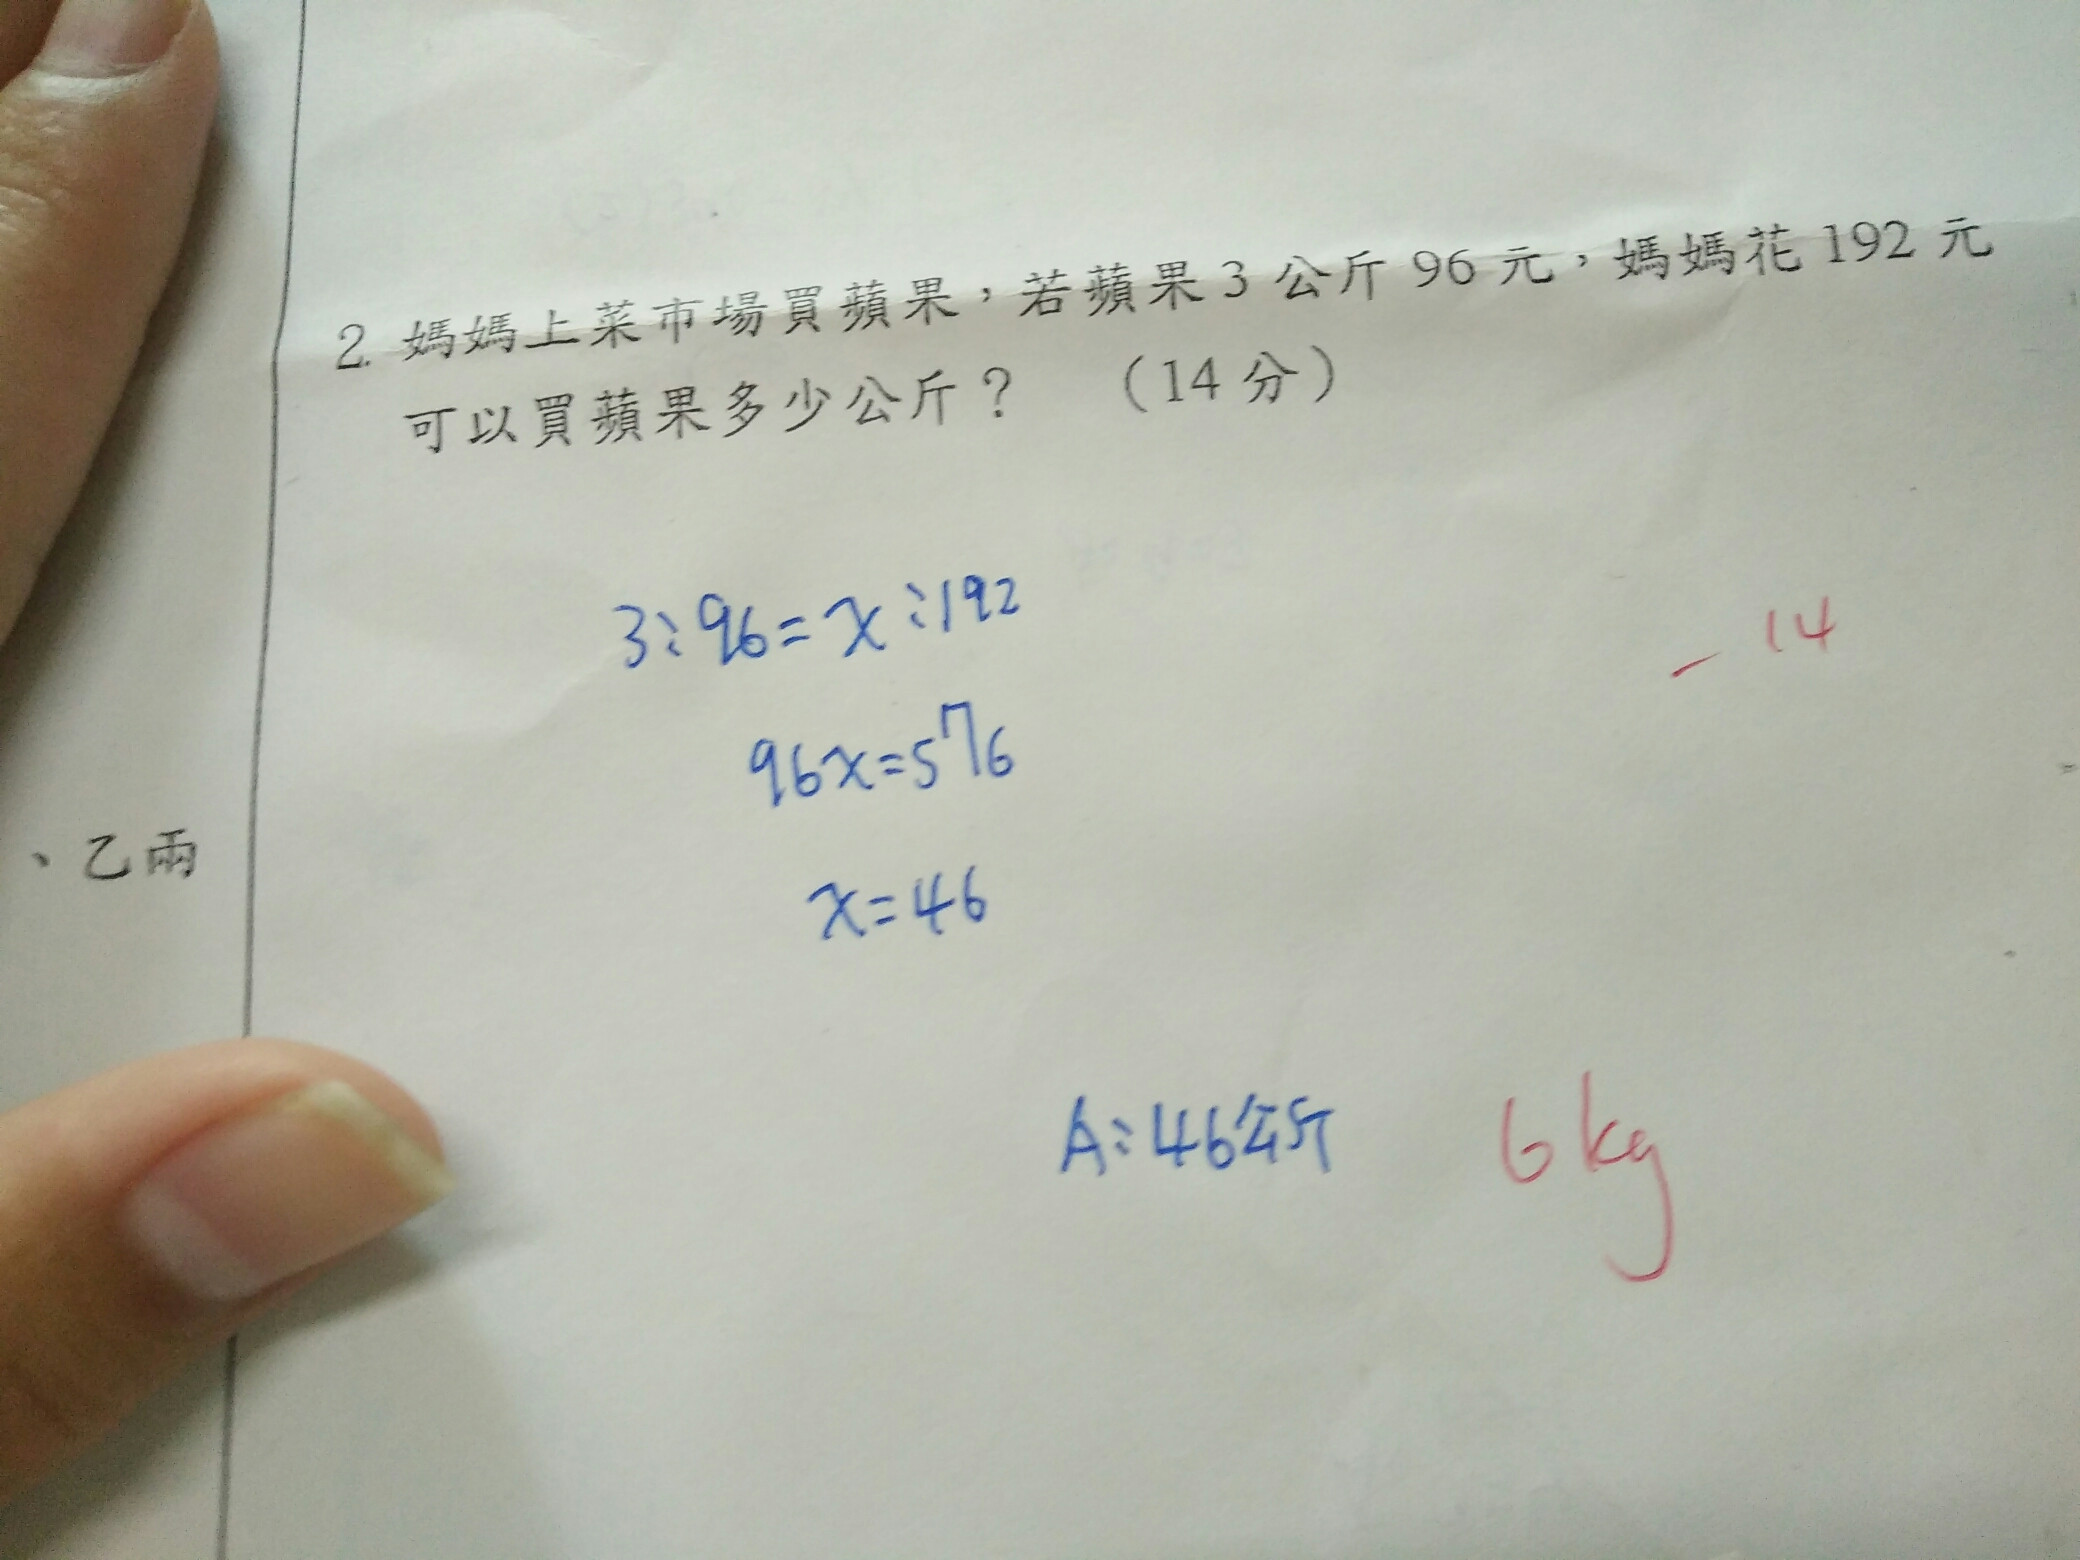 2. 媽媽上菜市場買蘋果，若蘋果3公斤96元，媽媽花192元
可以買蘋果多少公斤？ （14分）
3:96=x:192
-14
96x=576
、乙兩
x=46
A:46公斤 6kg